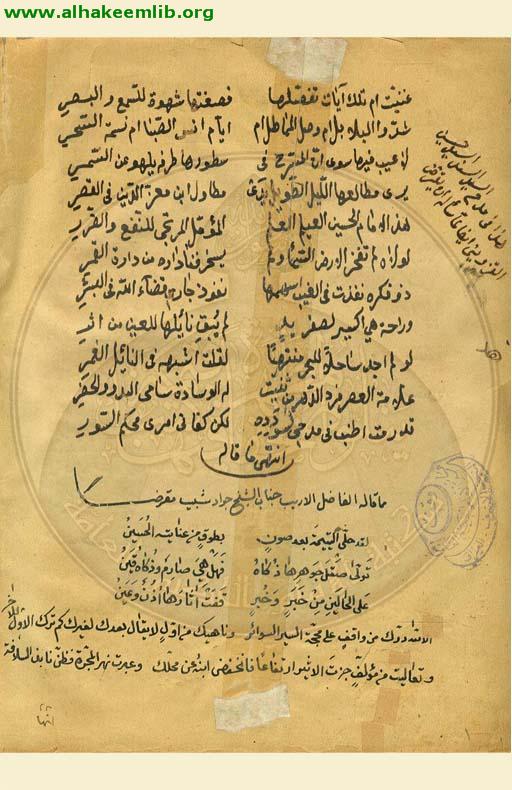 www.alhakeemlib.org
عنيت ام تلك آيات تفصلها فصغتها شهوة للسمع والبصر
ايام انس الصبا ام نسمة السحر
لاعيب فيها سوى ان المسرح في سطورها طرفه يلهو عن السمر
يرى مطالعها الليل الطويل يرى مطاول ابن معز الدين في القصر
هذا الامام الحسين العيلم العلم المؤمل المرتجى للنفع والضرر
لولاه لم تفخر الارض السماء ولم في دارة القمر
ذو فكرة نفذت في الغيب اسهمها نفوذ جار قضاء الله في البشر
وراحة هي اكسير لصفر يد لم يبق نايلها للعين من اثر
لو لم اجد ساحلا للبحر منتهيا لقلت اشبهه في النايل الغمر
علامة العصر فرد الدهر من ثنيت له الوسادة سامي البدو والحضر
قد رمت اطنب في مدحي لسؤدده لكن كفانى امرى محكم السور
انتهى ما قاله
ما قاله الفاضل الاريب جناب الشيخ جواد شبيب مقرضا
لقد حلى اليتيمة بعد صون بطوق من عنايته الحسين
تولى صقل جوهرها ذكاه فهل هي صارم وذكاه قين
على الحالين من خبر وخبر قفت آثارها اذن وعين
الا لله درك من واقف على محجة السير السوائر وناهيك من اول لايقال بعدك لغيرك كم ترك الاول للآخر
وتعاليت من مؤلف جزت الاثير ارتفاعا فانخفض ابنه عن محلك وعبرت نهر المجرة فظن نابذ السلافة
انها